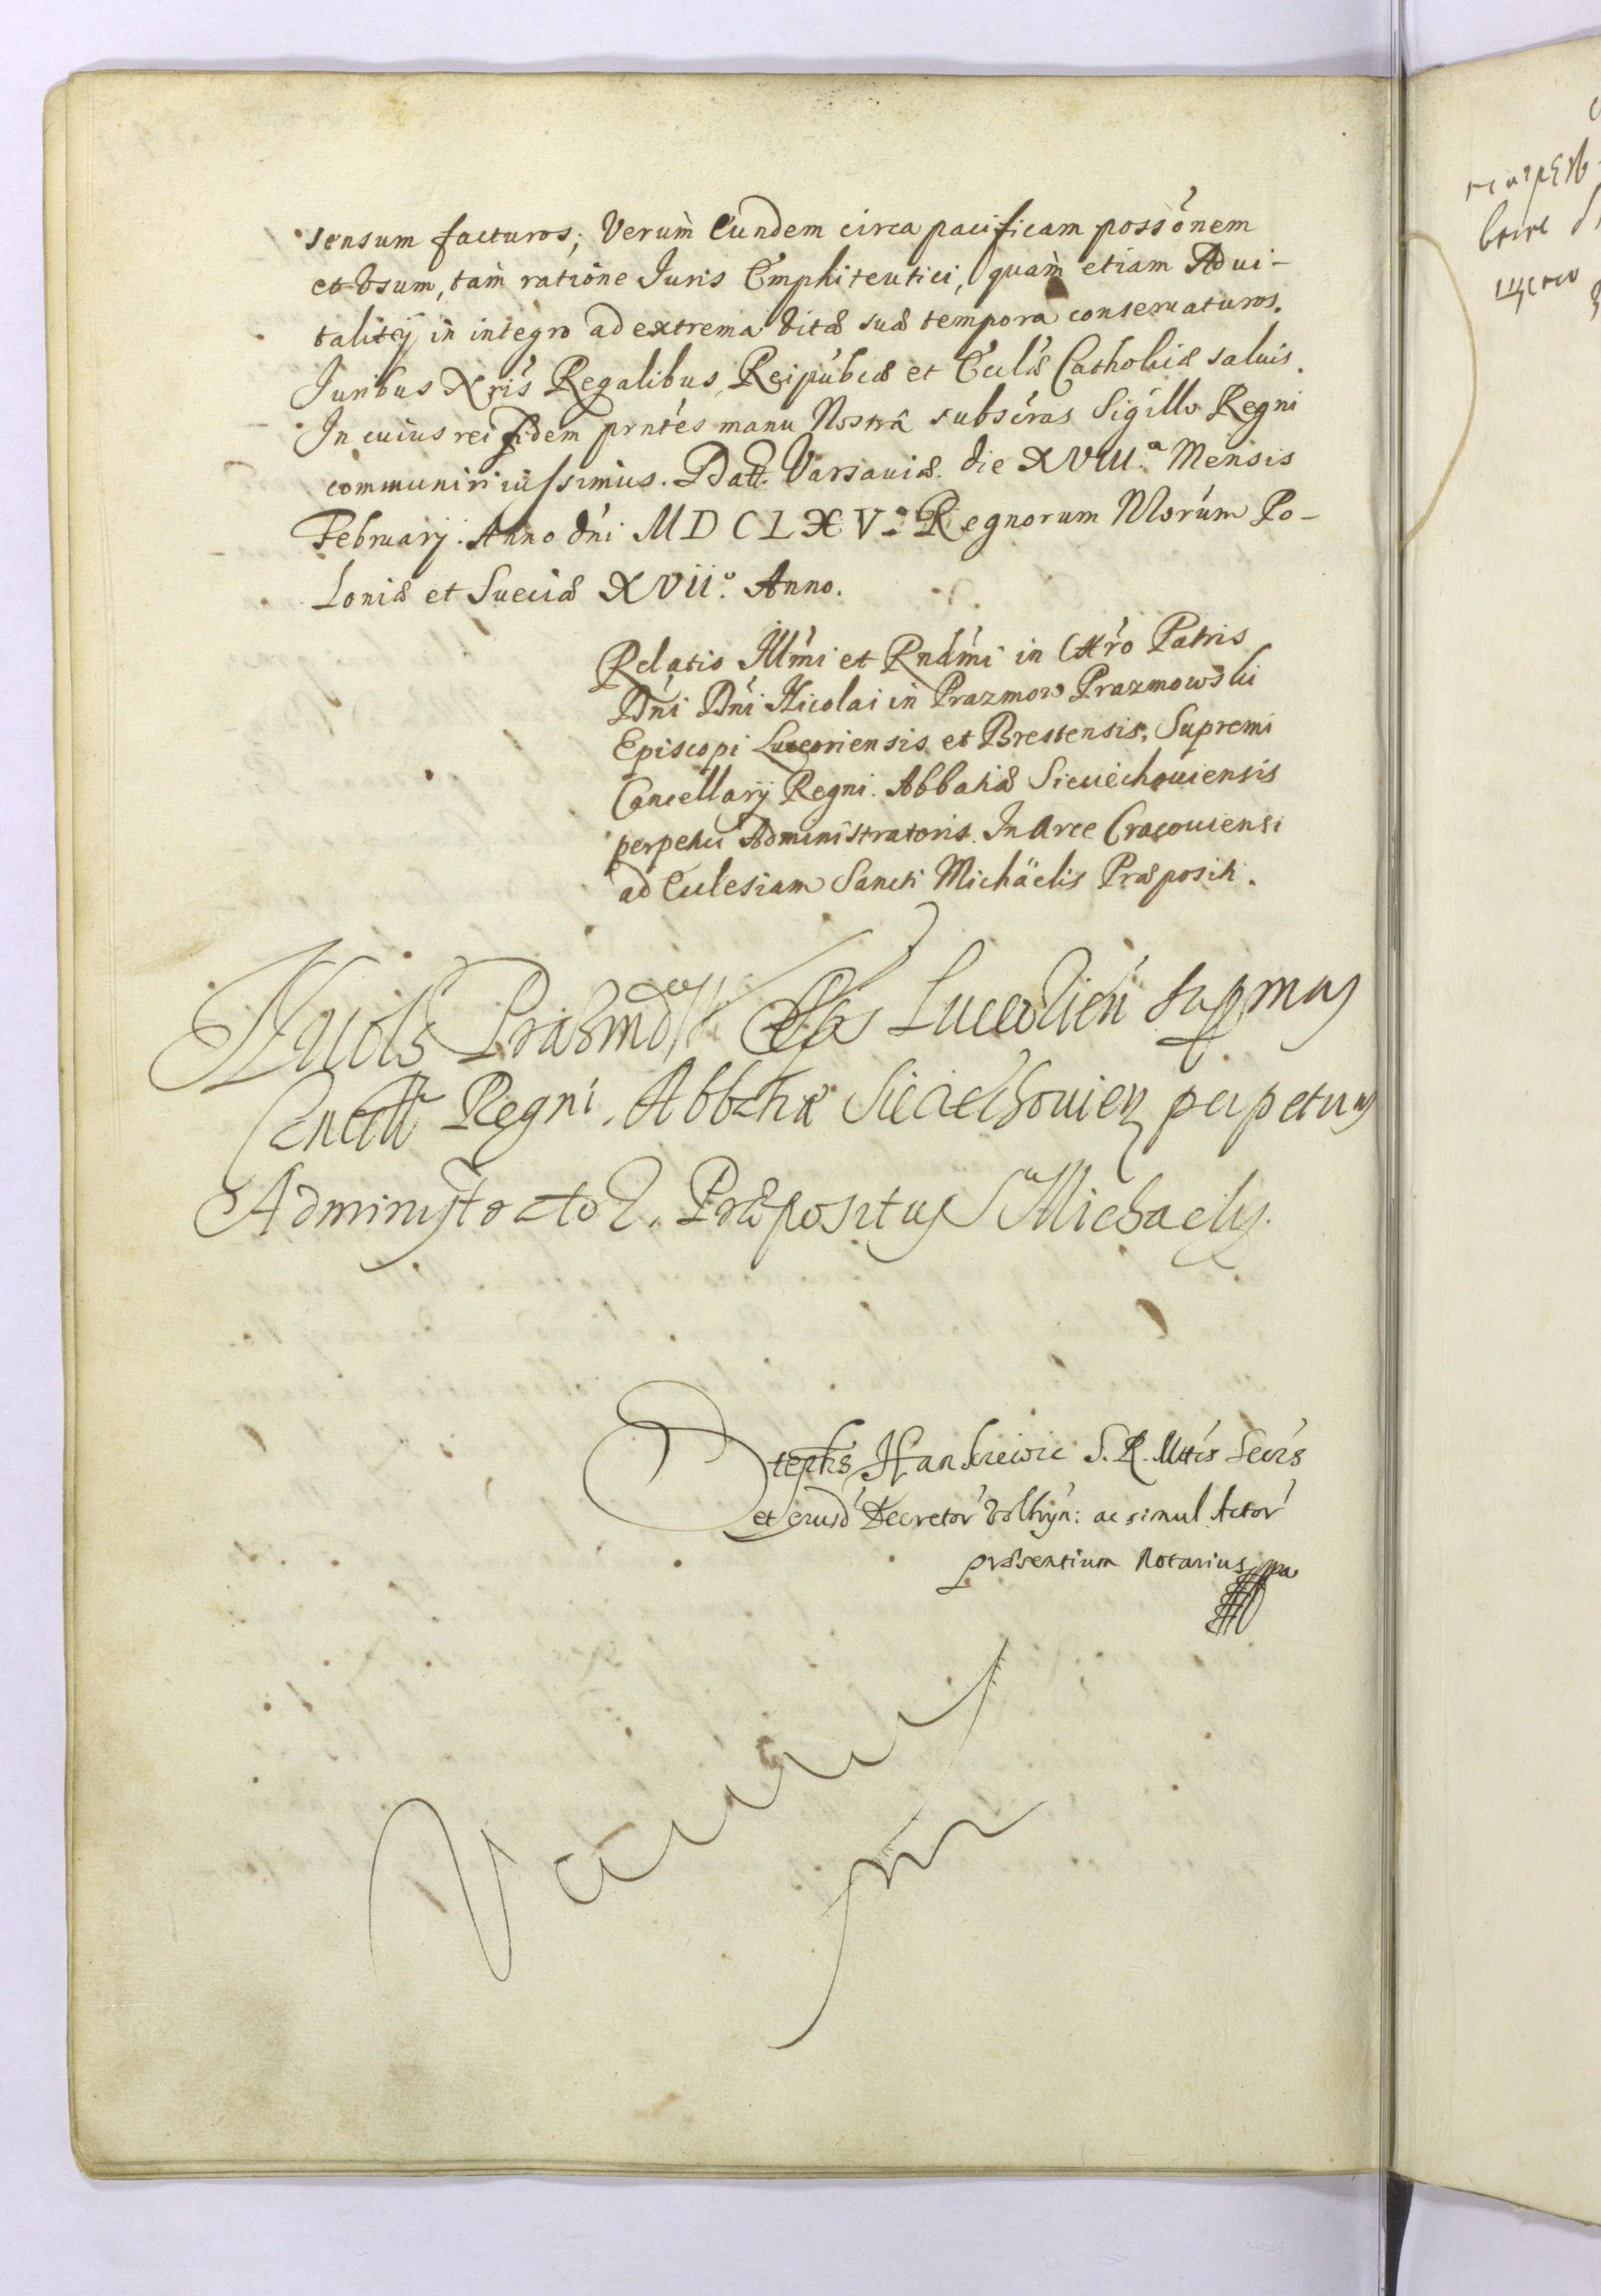 sensum facturos; Verum̀ Eundem circa pacificam possónem
et Vsum, tam̀ ratione Juris Emphiteutici, quam̀ etiam Advi-
talitÿ in integro ad extrema Vitæ suæ tempora conseruaturos.
Juribus Nris̃ Regalibus, Reipub́cæ et Ecclæ Catholicæ saluis.
In cuius rei fidem prnt́es manu Nostrâ subscŕas Sigillo Regni
communiri iussimus. Datt. Varsauiæ. die XVIII.ª Mensis
Februarÿ. Anno dńi MDCLXV.º Regnorum Nŕorum Po-
loniæ et Sueciæ XVII.º Anno.
Relatio Illm̃i et Rndm̃i in Xṕo Patris
Dńi Dńi Nicolai in Prazmow Prazmowski
Episcopi Luceoriensis et Brestensis, Supremi
Cancellarÿ Regni. Abbatiæ Sieciechouiensis
perpetui Administratoris. In Arce Cracouiensi
ad Ecclesiam Sancti Michäelis Præpositi.
Luceorień supmus
Regni. Abbatiæ Sieciechouien perpetuus
Administrator. Præpositus S Michaelis.
Stephs̃ Hankiewic S. R. Mtis Secrś
et eiusd́ Decretoŕ Volhyń: ac simul Actoŕ
præsentium Notarius mpa